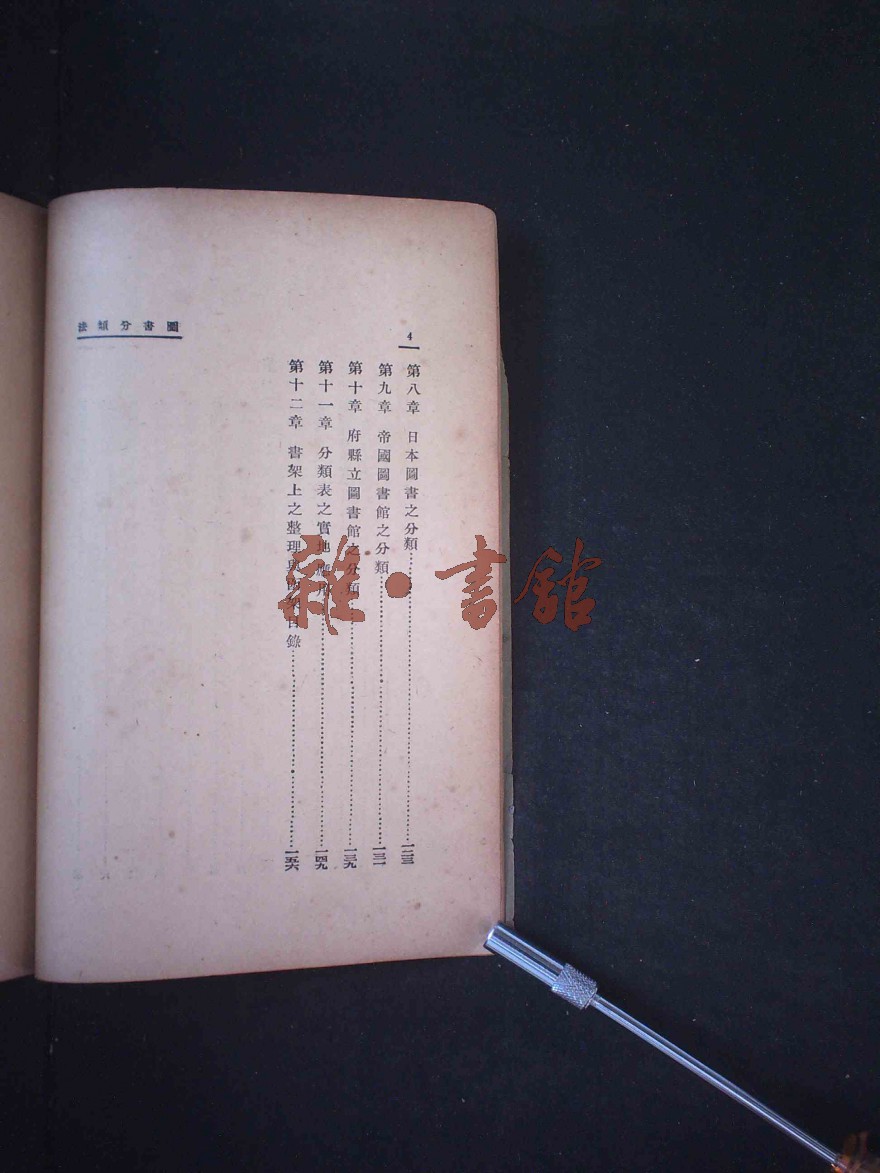 圖書分類法
4
第八章 日本圖書之分類……一二三
第九章 帝國圖書館之分類……一三一
第十章 府縣立圖書館之分類……一三九
第十一章 分類表之實地應用……一四九
第十二章 書架上之整理與函架目錄……一五六
雜·書館